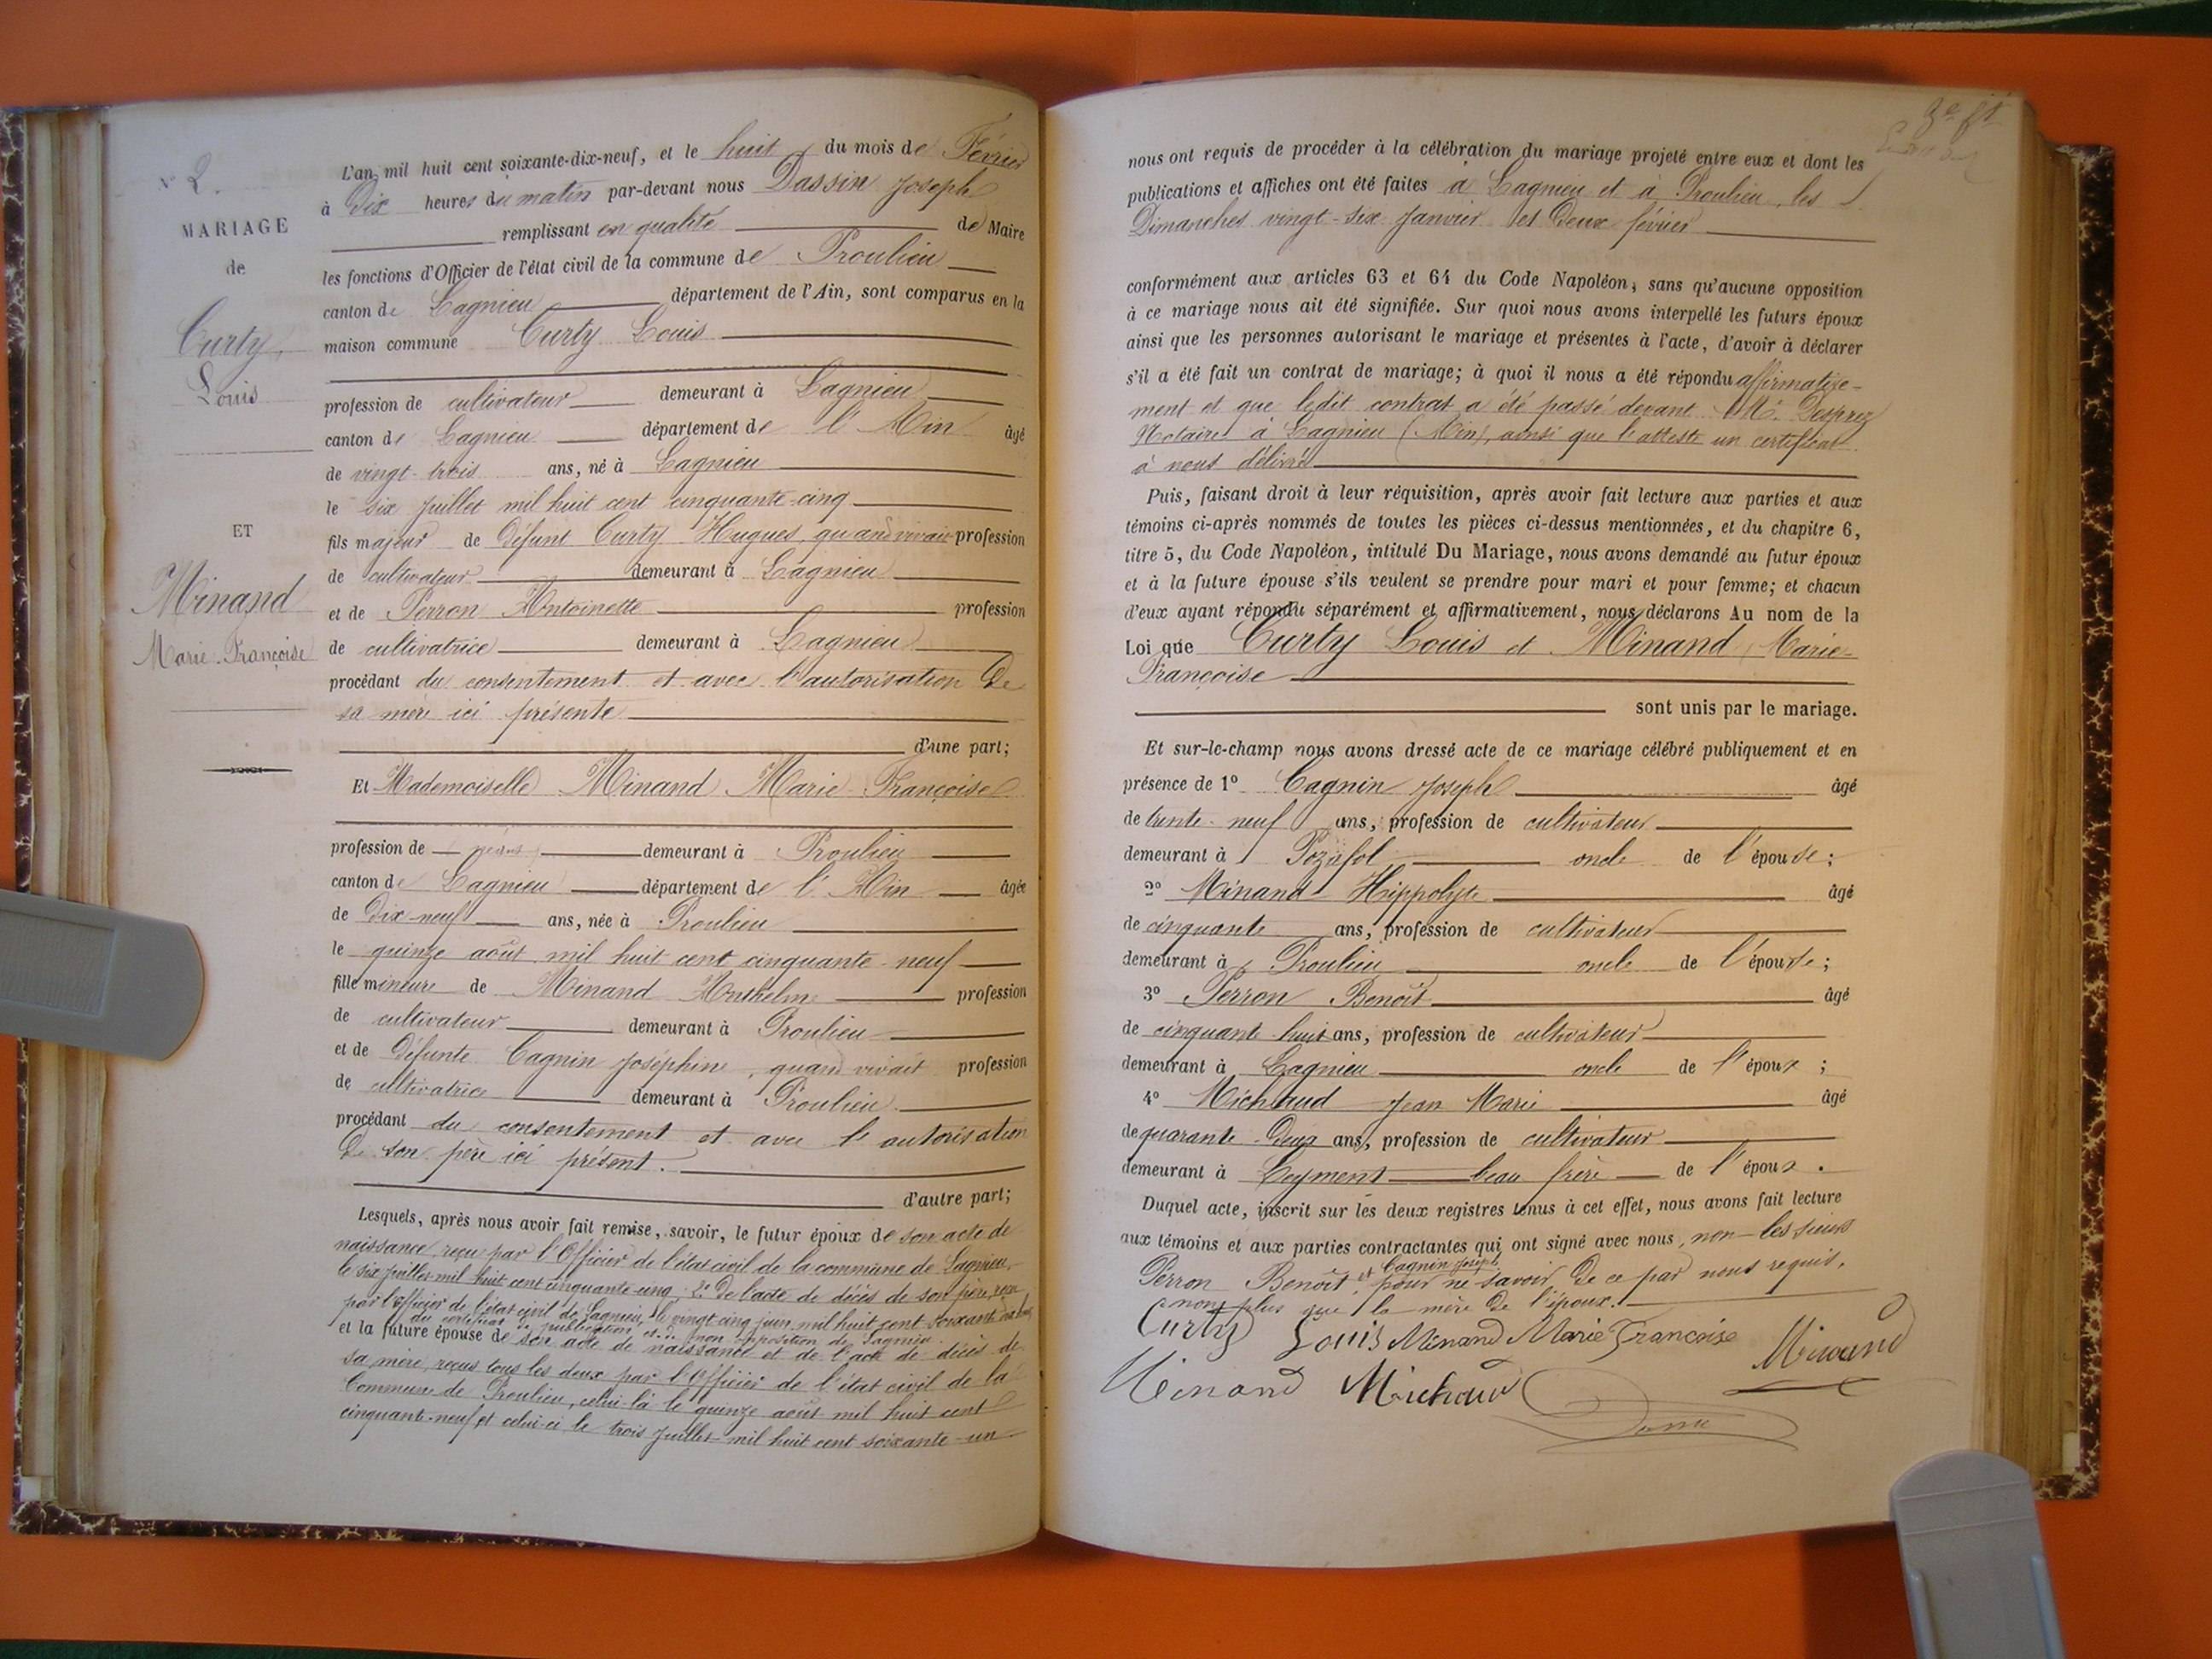 N° 2.
MARIAGE
de
Curty,
Louis
ET
Minand
Marie-Françoise
L'an mil huit cent soixante-dix-neuf, et le huit du mois de Février
à Dix heures du matin par-devant nous Dassin Joseph
remplissant en qualité de Maire
les fonctions d'Officier de l'état civil de la commune de Proulieu
canton de Lagnieu département de l'Ain, sont comparus en la
maison commune Curty Louis
profession de cultivateur demeurant à Lagnieu
canton de Lagnieu département de l'Ain âgé
de vingt-trois ans, né à Lagnieu
le six juillet mil huit cent cinquante-cinq
fils majeur de défunt Curty Hugues, quand vivait profession
de cultivateur demeurant à Lagnieu
et de Perron Antoinette profession
de cultivatrice demeurant à Lagnieu
procédant du consentement et avec l'autorisation de
sa mère ici présente
d'une part;
Et Mademoiselle Minand Marie Françoise
profession de demeurant à Proulieu
canton de Lagnieu département de l'Ain âgée
de Dix-neuf ans, née à Proulieu
le quinze août mil huit cent cinquante-neuf
fille mineure de Minand Anthelme profession
de cultivateur demeurant à Proulieu
et de défunte Cagnin Joséphine, quand vivait profession
de cultivatrice demeurant à Proulieu
procédant du consentement et avec l'autorisation
de son père ici présent.
d'autre part;
Lesquels, après nous avoir fait remise, savoir, le futur époux de son acte de
naissance reçu par l'Officier de l'état civil de la commune de Lagnieu
le six juillet mil huit cent cinquante-cinq, 2° De l'acte de décès de son père, reçu
par l'officier de l'état civil de Lagnieu, le vingt cinq juin mil huit cent soixante
du certificat de publication et de non opposition de Lagnieu
et la future épouse de son acte de naissance et de l'acte de décès de
sa mère, reçus tous les deux par l'Officier de l'état civil de la
Commune de Proulieu, celui-là le quinze août mil huit cent
cinquante-neuf et celui-ci le trois juillet mil huit cent soixante-un
3e ft
nous ont requis de procéder à la célébration du mariage projeté entre eux et dont les
publications et affiches ont été faites à Lagnieu et à Proulieu, les
Dimanches vingt-six Janvier et Deux février
conformément aux articles 63 et 64 du Code Napoléon, sans qu'aucune opposition
à ce mariage nous ait été signifiée. Sur quoi nous avons interpellé les futurs époux
ainsi que les personnes autorisant le mariage et présentes à l'acte, d'avoir à déclarer
s'il a été fait un contrat de mariage; à quoi il nous a été répondu affirmative-
ment et que ledit contrat a été passé devant Me Desprez
Notaire à Lagnieu (Ain), ainsi que l'atteste un certificat
à nous délivré
Puis, faisant droit à leur réquisition, après avoir fait lecture aux parties et aux
témoins ci-après nommés de toutes les pièces ci-dessus mentionnées, et du chapitre 6,
titre 5, du Code Napoléon, intitulé Du Mariage, nous avons demandé au futur époux
et à la future épouse s'ils veulent se prendre pour mari et pour femme; et chacun
d'eux ayant répondu séparément et affirmativement, nous déclarons Au nom de la
Loi que Curty Louis et Minand Marie-
Françoise
sont unis par le mariage.
Et sur-le-champ nous avons dressé acte de ce mariage célébré publiquement et en
présence de 1° Cagnin Joseph âgé
de trente-neuf ans, profession de cultivateur
demeurant à Pozafol oncle de l'épouse;
2° Minand Hippolyte âgé
de cinquante ans, profession de cultivateur
demeurant à Proulieu oncle de l'épouse;
3° Perron Benoît âgé
de cinquante-huit ans, profession de cultivateur
demeurant à Lagnieu oncle de l'époux;
4° Michaud Jean Marie âgé
de quarante-deux ans, profession de cultivateur
demeurant à Leyment beau frère de l'époux.
Duquel acte, inscrit sur les deux registres tenus à cet effet, nous avons fait lecture
aux témoins et aux parties contractantes qui ont signé avec nous, non les sieurs
Perron Benoît, et Cagnin Joseph pour ne savoir, de ce par nous requis,
non plus que la mère de l'époux.
Curty Louis Minand Marie Francoise Minand
Minand Michaud